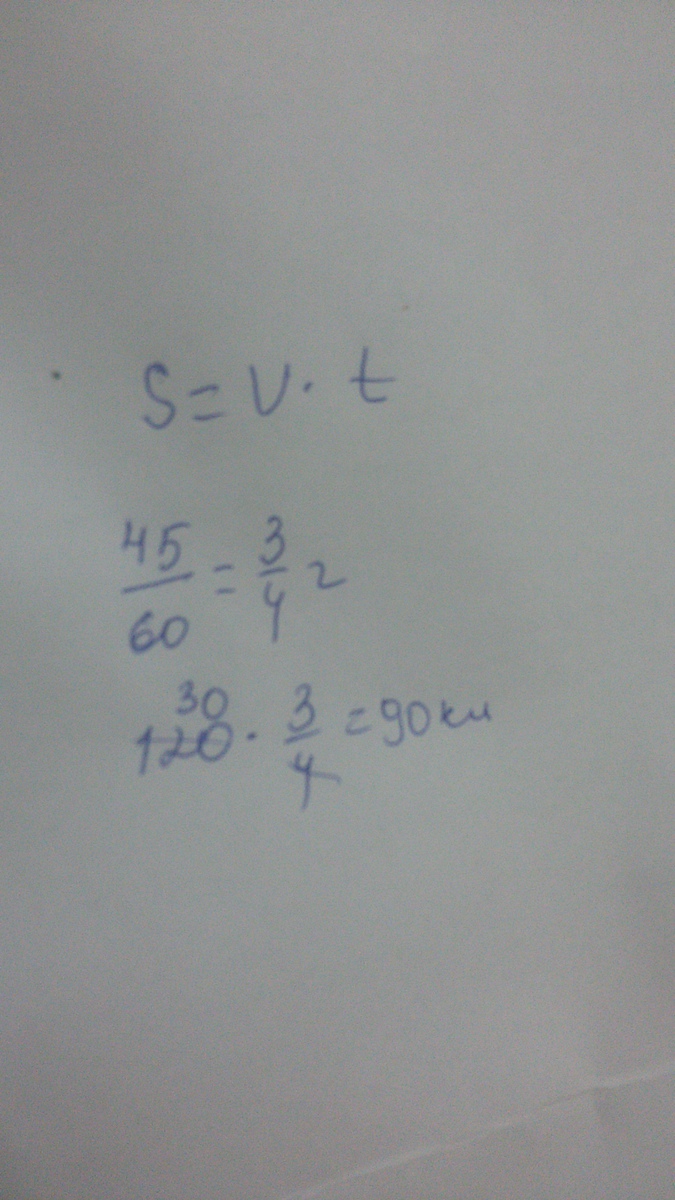 S = V · t
45/60 = 3/4 г
30
120 · 3/4 = 90 км